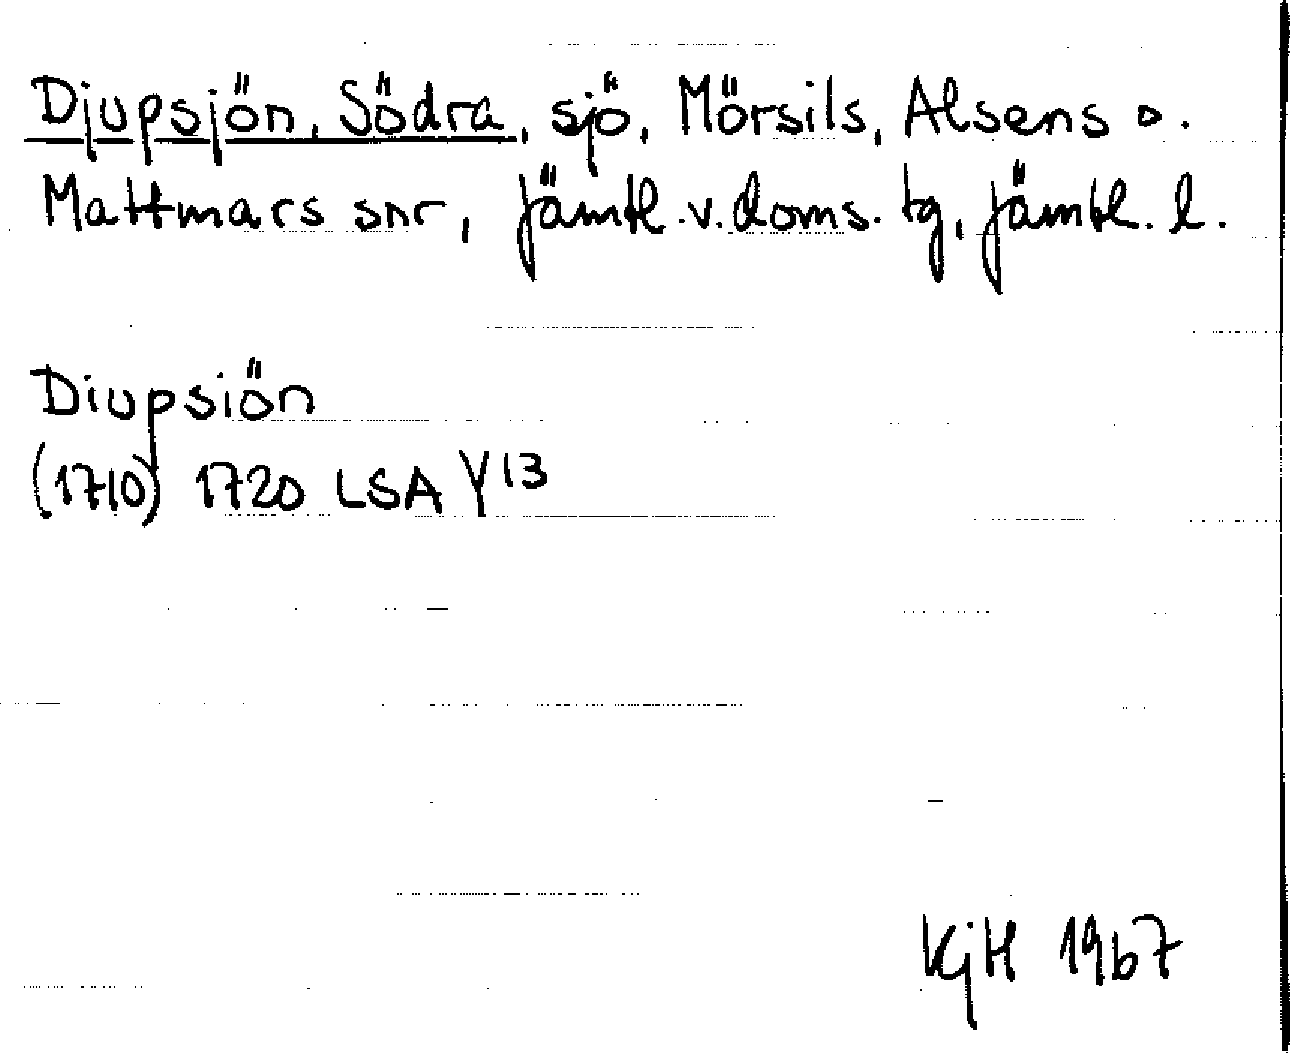 Djupsjön, Södra, sjö, Mörsils, Alsens o.
Mattmars snr, Jämtl. v. doms. tg, Jämtl. l.
Diupsiön
(1710) 1720 LSA Y13
KjH 1967